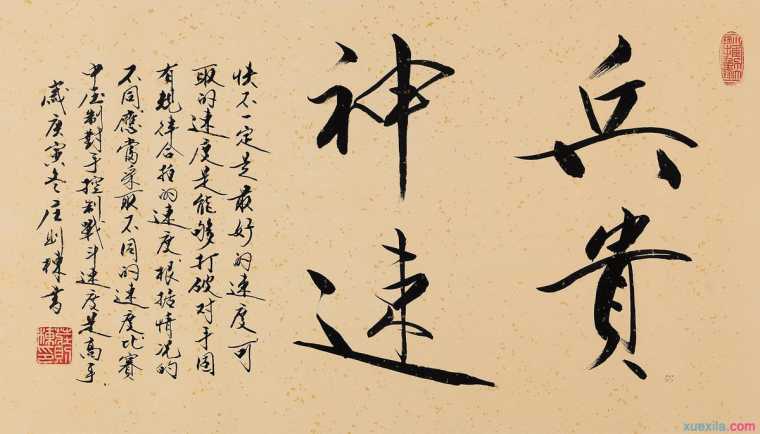 兵貴
神速
快不一定是最好的速度可
取的速度是能够打破对手固
有規律合拍的速度根據情况的
不同應當采取不同的速度比賽
中压制對手控制戰斗速度是高手
歲庚寅冬庄則棟書
xuexila.com